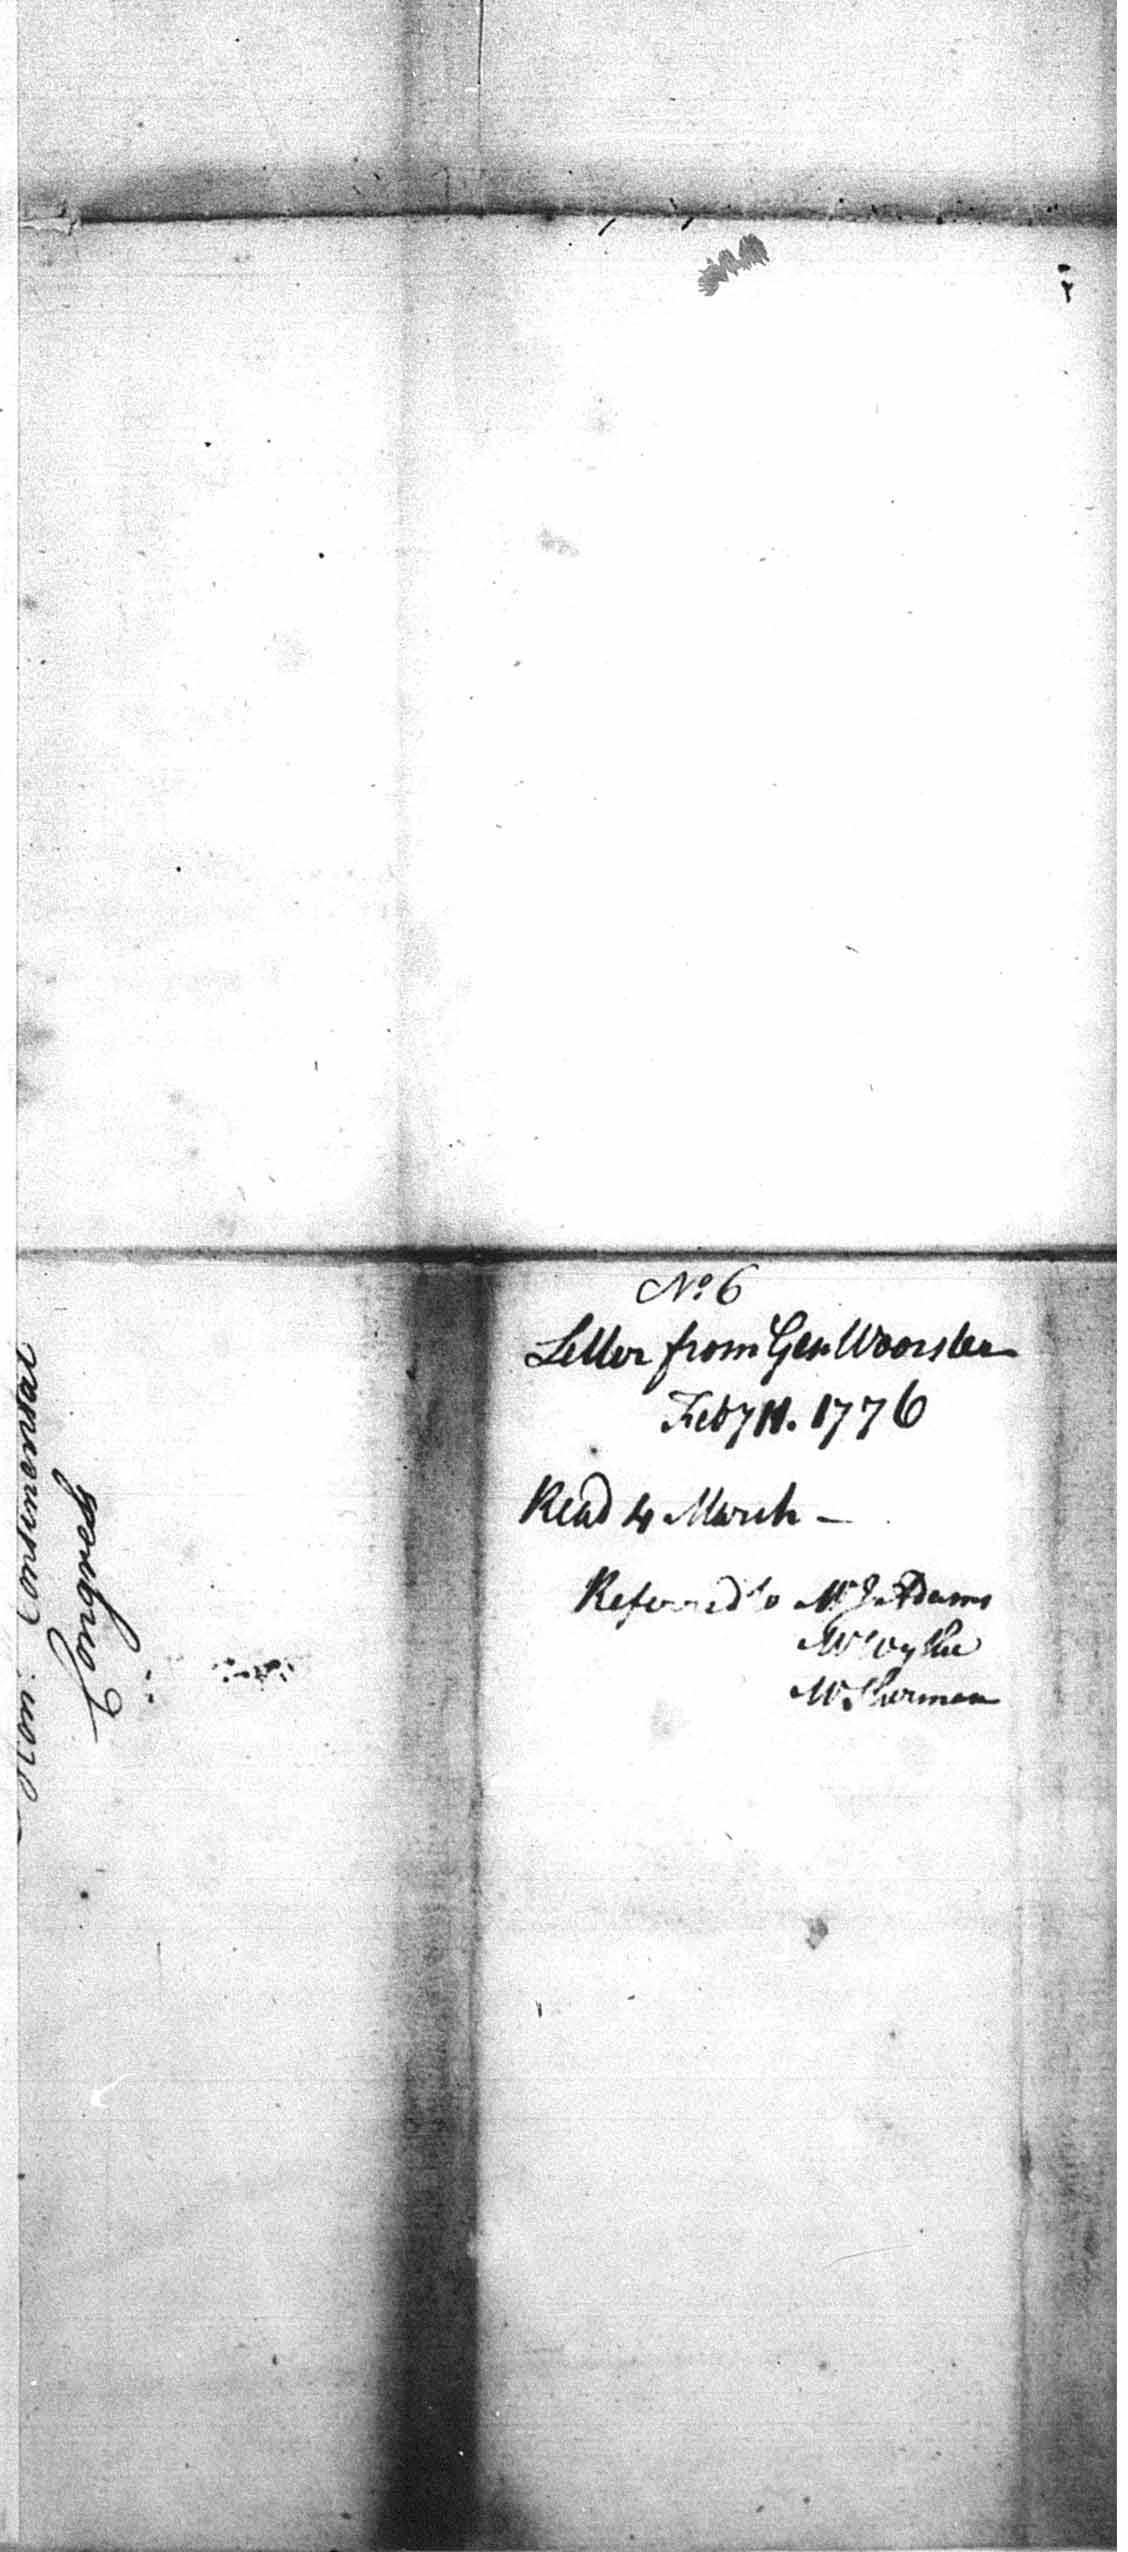 Hon: Continental
Congress
No. 6
Letter from Gen Woorster
Feby 11. 1776
Read 4 March —
Referred to Mr J. Adams
Mr Wythe
Mr Sherman